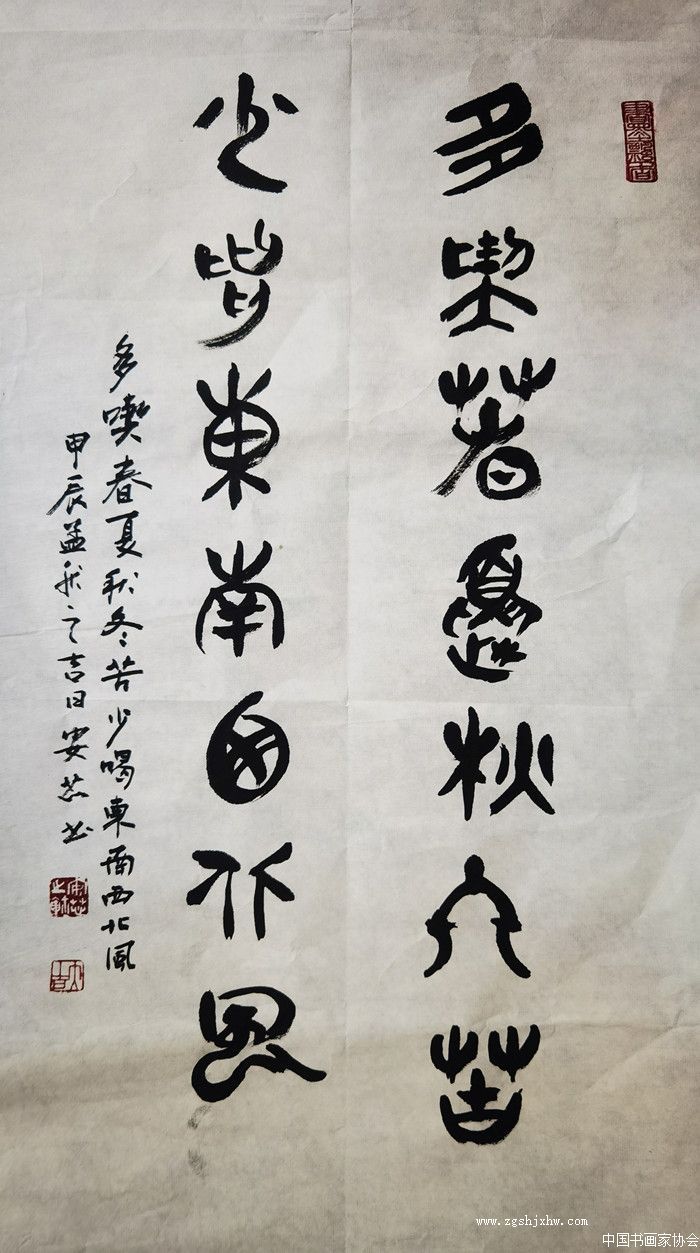 多喫春夏秋冬苦
少喝東南西北風
多喫春夏秋冬苦少喝東南西北風
甲辰孟秋之吉日安芯书
www.zgshjxhw.com
中国书画家协会